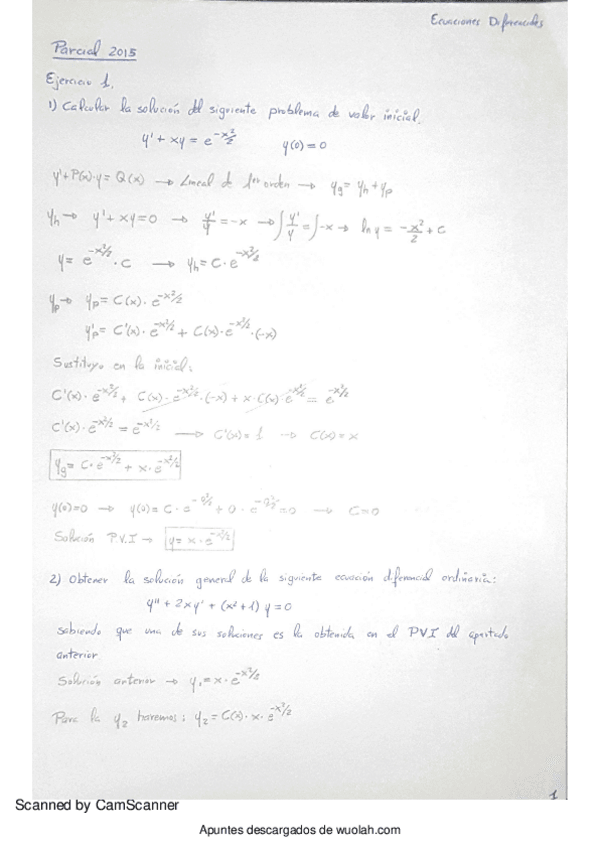 Ecuaciones Diferenciales
Parcial 2015
Ejercicio 1.
1) Calcular la solución del siguiente problema de valor inicial.
y' + xy = e^(-x²/2)    y(0)=0
y'+P(x)·y = Q(x) → Lineal de 1er orden → y_g = y_h + y_p
y_h → y'+xy=0 → y'/y = -x → ∫ y'/y = ∫ -x → ln y = -x²/2 + C
y = e^(-x²/2) · C → y_h = C·e^(-x²/2)
y_p → y_p = C(x)·e^(-x²/2)
y'_p = C'(x)·e^(-x²/2) + C(x)·e^(-x²/2)·(-x)
Sustituyo en la inicial:
C'(x)·e^(-x²/2) + C(x)·e^(-x²/2)·(-x) + x·C(x)·e^(-x²/2) = e^(-x²/2)
C'(x)·e^(-x²/2) = e^(-x²/2) → C'(x)=1 → C(x)=x
y_g = C·e^(-x²/2) + x·e^(-x²/2)
y(0)=0 → y(0) = C·e^(-0²/2) + 0·e^(-0²/2) = 0 → C=0
Solución P.V.I → y = x·e^(-x²/2)
2) Obtener la solución general de la siguiente ecuación diferencial ordinaria:
y'' + 2xy' + (x²+1) y = 0
sabiendo que una de sus soluciones es la obtenida en el PVI del apartado
anterior
Solución anterior → y₁ = x·e^(-x²/2)
Para la y₂ haremos: y₂ = C(x)·x·e^(-x²/2)
1
Scanned by CamScanner
Apuntes descargados de wuolah.com